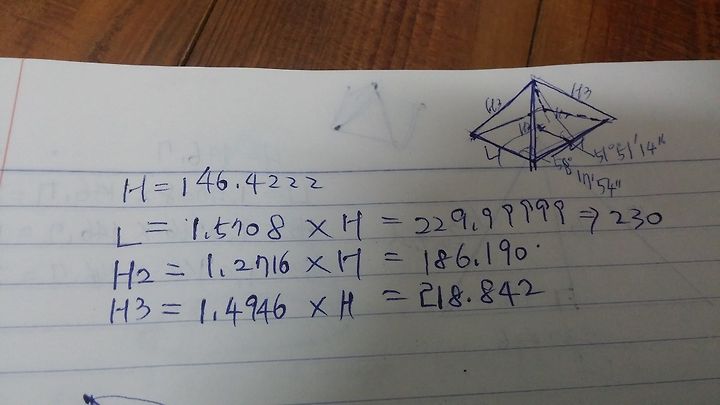 H3
H3
L
51°51'14"
58°
17'54"
H = 146.4222
L = 1.5708 × H = 229.99999 ⇒ 230
H2 = 1.2716 × H = 186.190
H3 = 1.4946 × H = 218.842